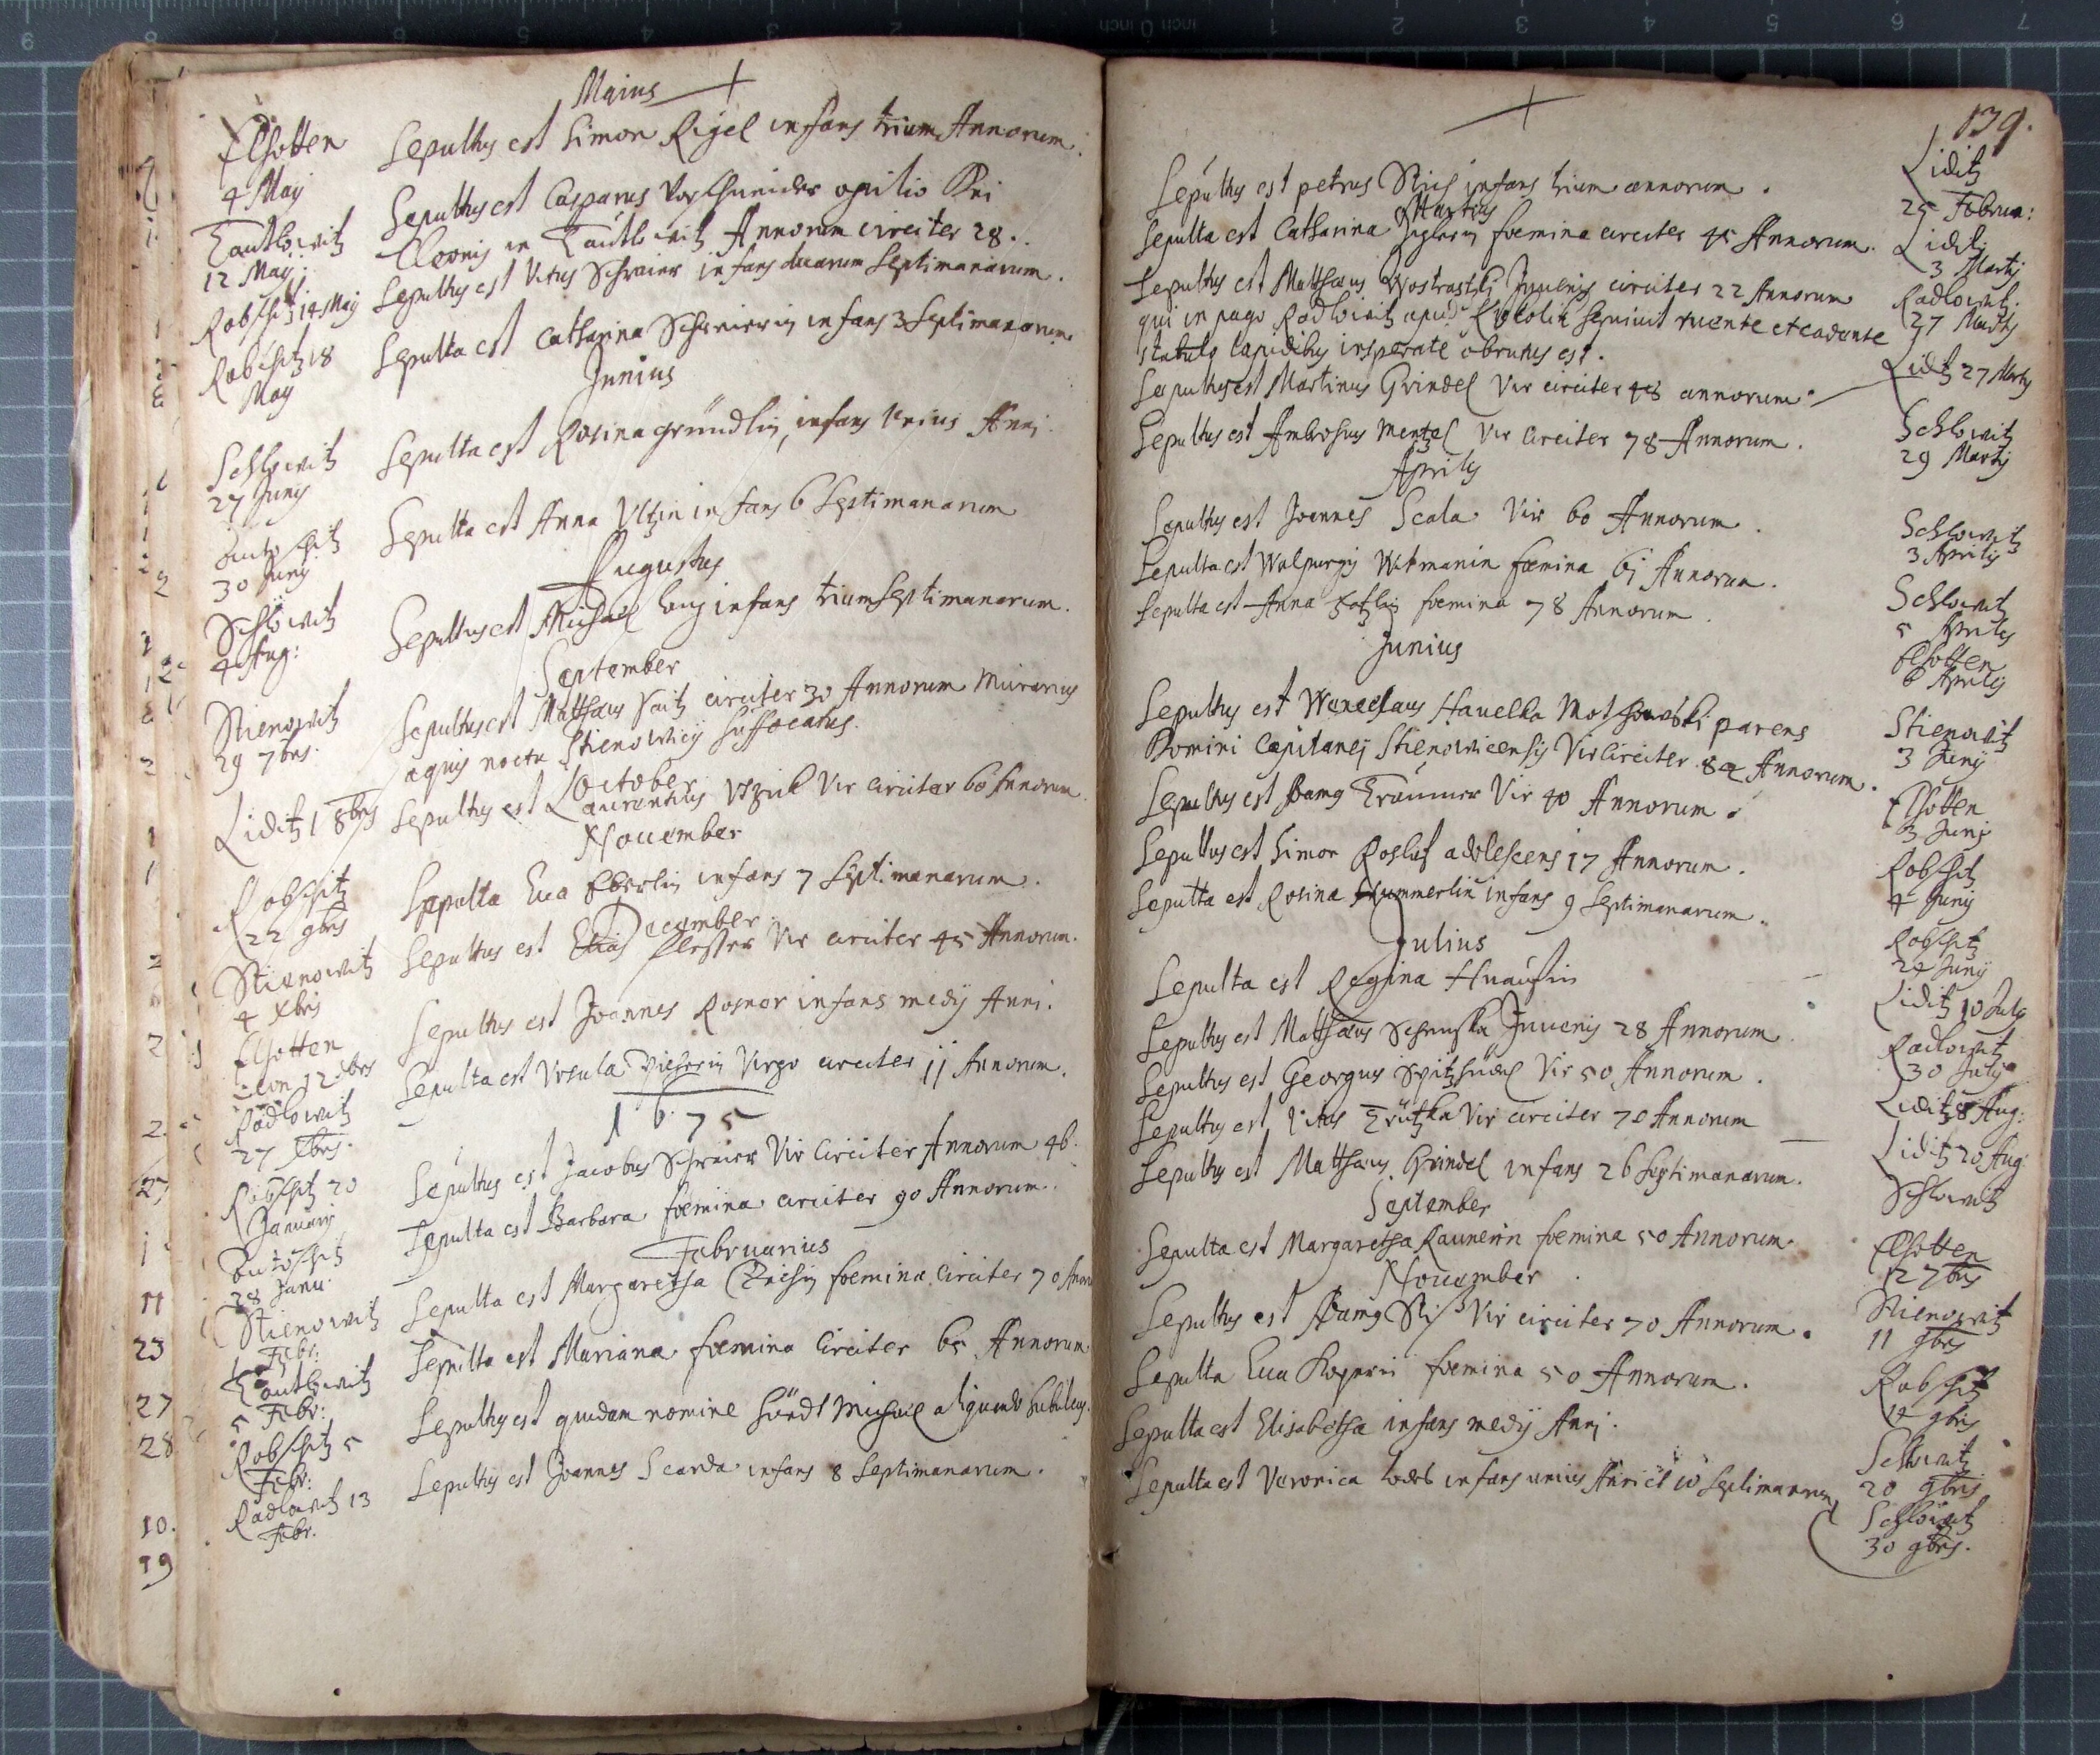 Maius
Elhotten
4 Maij
Sepultus est Simon Rigel infans trium Annorum.
Tautlowitz
12 Maij
Sepultus est Casparus Vorschneider opilio Dni
in Tautlowitz Annorum circiter 28.
Robschitz 14 Maij
Sepultus est Vitus Schreier infans duarum Septimanarum.
Robschitz 18
Maij
Sepulta est Catharina Schreierin infans 3 Septimanarum
Junius
Schlowitz
27 Junij
Sepulta est Rosina gründlin, infans Unius Anni.
30 Junij
Sepulta est Anna Ultzin infans 6 Septimanarum
Augustus
Schlowitz
4 Aug:
Sepultus est Michael infans trium Septimanarum.
September
Stienowitz
29 7bris.
Sepultus est Matthaeus circiter 30 Annorum Murarius
aquis noctu Stienowicij suffocatus.
October
Liditz 1 8bris
Sepultus est Laurentius Vir circiter 60 Annorum
November
Robschitz
22 9bris
Sepulta Eua Eberlin infans 7 Septimanarum.
December
Stienowitz
4 Xbris
Sepultus est Elias Vir circiter 45 Annorum.
Elhotten
Sepultus est Joannes Rosner infans medij Anni.
Radlowitz
27 Xbris.
Sepulta est Vrsula Virgo circiter 11 Annorum.
1675
Robschitz 20
Januarij
Sepultus est Jacobus Schreier Vir Circiter Annorum 46.
28 Janu.
Sepulta est Barbara foemina circiter 90 Annorum.
Februarius
Stienowitz
Febr.
Sepulta est Margaretha foemina Circiter 70
Tautlowitz
5 Febr:
Sepulta est Mariana foemina Circiter 65 Annorum
Robschitz 5
Febr:
Sepultus est quidam nomine Michael
Radlowitz 13
Febr.
Sepultus est Joannes Scarda infans 8 Septimanarum.
2
1
1
27
11
23
27
28
10.
19
139.
Sepultus est petrus infans trium annorum.
Liditz
25 Februa:
Martius
Sepulta est Catharina foemina circiter 45 Annorum.
Liditz
3 Martij
Sepultus est Matthaeus Juuenis circiter 22 Annorum
qui in pago Radlowitz apud seruiuit ruente et cadente
stabulo lapidibus insperate obrutus est.
Radlowitz
27 Martij
Sepultus est Martinus Grindel Vir circiter 48 annorum.
Liditz 27 Martij
Sepultus est Ambrosius Mentzel Vir circiter 78 Annorum.
Schlowitz
29 Martij
Aprilis
Sepultus est Joannes Scala Vir 60 Annorum.
Schlowitz
3 Aprilis
Sepulta est Walpurgis foemina 61 Annorum.
Schlowitz
5 Aprilis
Sepulta est Anna foemina 78 Annorum.
Elhotten
6 Aprilis
Junius
Sepultus est Wenceslaus Hauelka parens
Domini Capitanej Stienowicensis Vir Circiter 84 Annorum.
Stienowitz
3 Junij
Sepultus est Vir 40 Annorum.
Elhotten
3 Junij
Sepultus est Simon adolescens 17 Annorum.
Robschitz
4 Junij
Sepulta est Rosina infans 9 Septimanarum.
Robschitz
24 Junij
Julius
Sepulta est Regina
Liditz 10 Julij
Sepultus est Matthaeus Juuenis 28 Annorum.
Radlowitz
30 Julij
Sepultus est Georgius Vir 50 Annorum.
Liditz 8 Aug:
Sepultus est Vitus Vir circiter 70 Annorum
Liditz 20 Aug:
Sepultus est Matthaeus Grindel infans 26 Septimanarum.
Schlowitz
September
Sepulta est Margaretha foemina 50 Annorum.
Elhotten
12 7bris
November
Sepultus est Vir circiter 70 Annorum.
Stienowitz
11 9bris
Sepulta Eua foemina 50 Annorum.
Robschitz
14 9bris
Sepulta est Elisabetha infans medij Anni.
Schlowitz
20 9bris
Sepulta est Veronica infans unius Anni et 10 Septimanarum
Schlowitz
30 9bris.